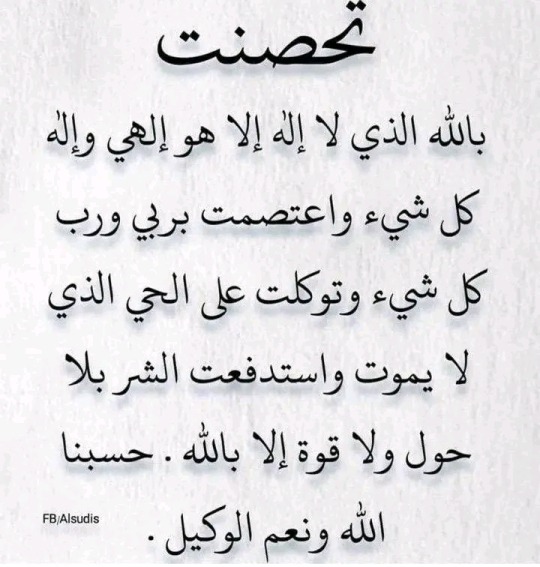 تحصنت
بالله الذي لا إله إلا هو إلهي وإله
كل شيء واعتصمت بربي ورب
كل شيء وتوكلت على الحي الذي
لا يموت واستدفعت الشر بلا
حول ولا قوة إلا بالله . حسبنا
الله ونعم الوكيل .
FB/Alsudis